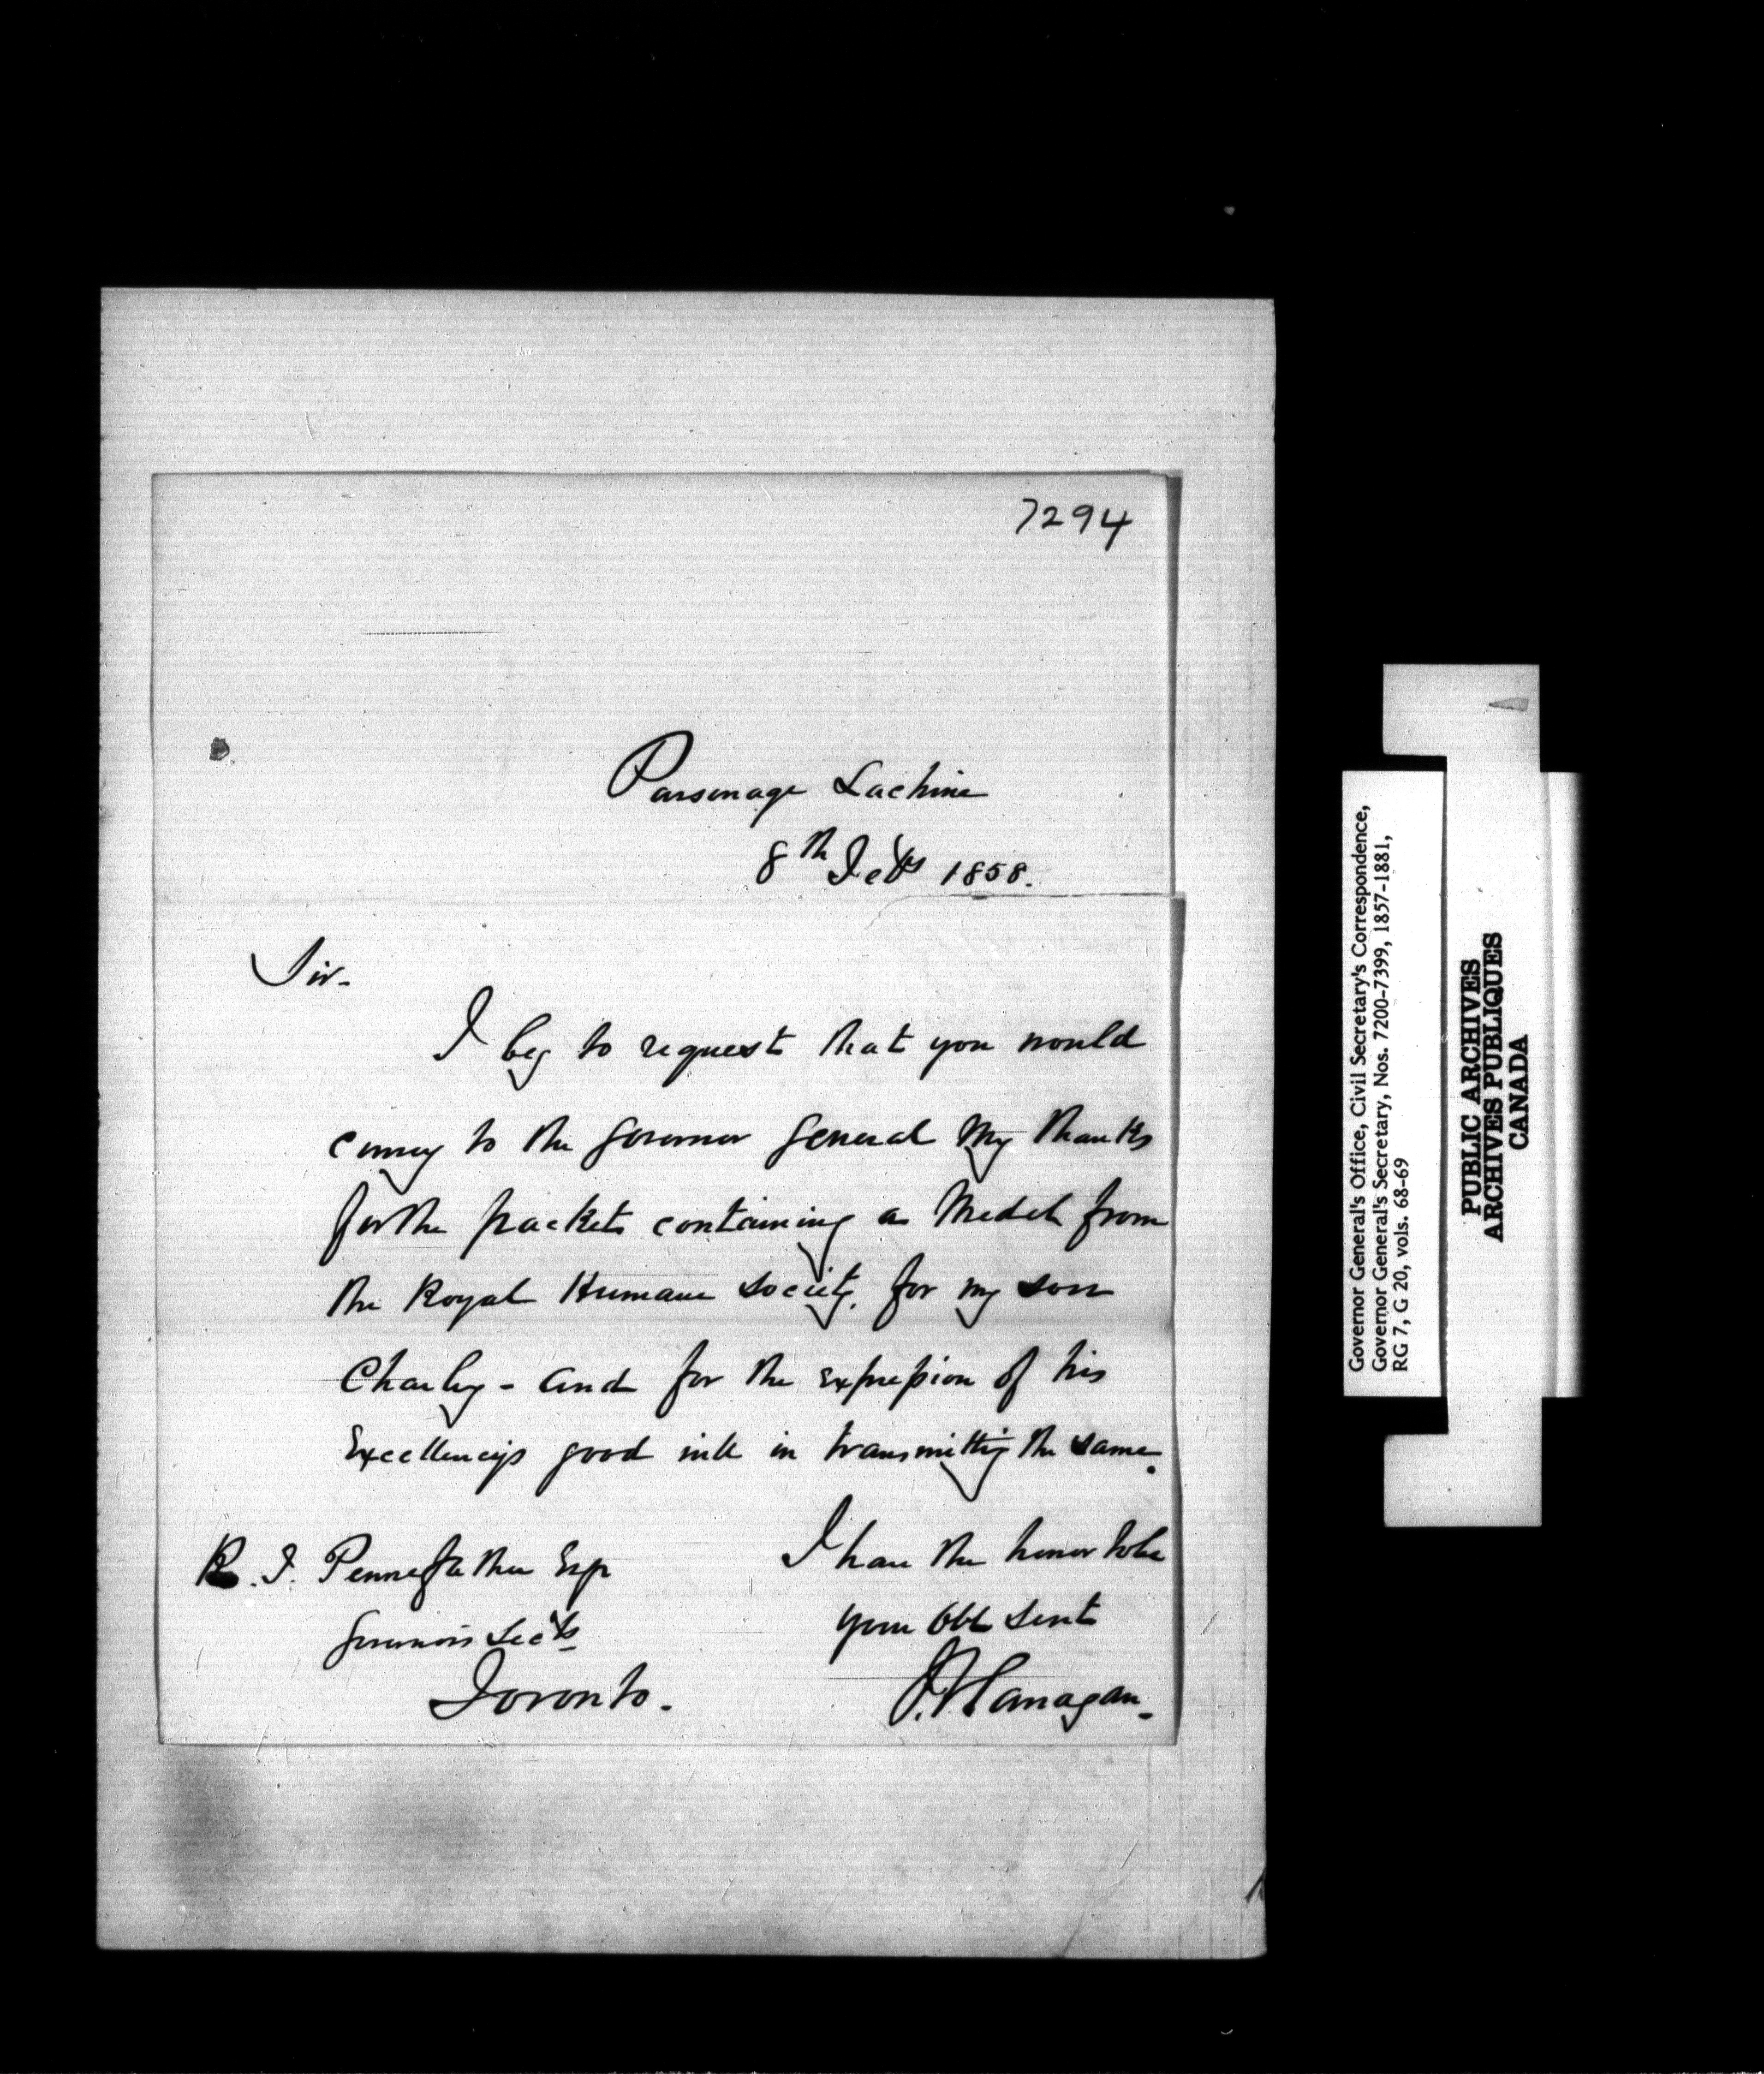 7294
Parsonage Lachine
8th Feby 1858.
Sir-
I beg to request that you would
convey to the Governor General my thanks
for the packet containing a Medal from
the Royal Humane Society. for my son
Charley - and for the expression of his
Excellency's good will in transmitting the same.
I have the honor to be
your Obt Servt
J. Flanagan.
R. T. Pennefather Esqr
Governor's Secty
Toronto.
Governor General's Office, Civil Secretary's Correspondence,
Governor General's Secretary, Nos. 7200-7399, 1857-1881,
RG 7, G 20, vols. 68-69
PUBLIC ARCHIVES
ARCHIVES PUBLIQUES
CANADA